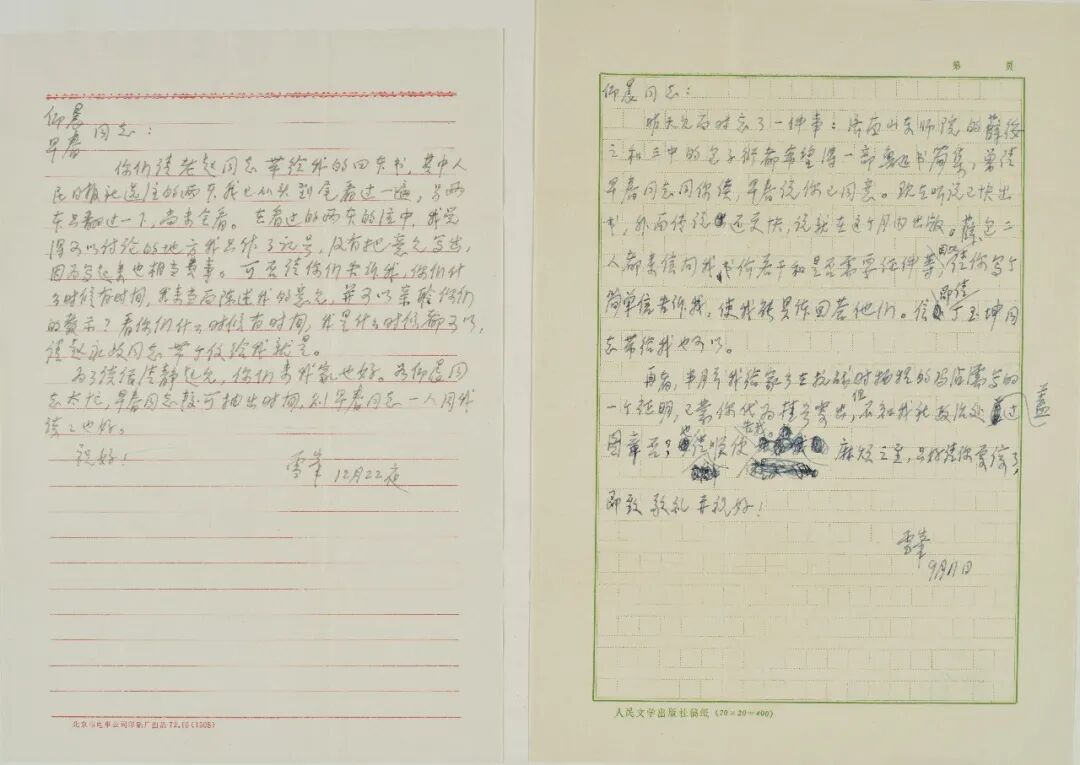 仰晨
早春 同志：
你们请老赵同志带给我的四本书，其中人
民日报社送注的两本，我已从头到尾看过一遍，另两
本只翻过一下，尚未全看。在看过的两本的注中，我觉
得可以讨论的地方我只作了记号，没有把意见写出，
因为写起来也相当费事。可否请你们告诉我，你们什
么时候有时间，我来当面陈述我的意见，并可以亲聆你们
的教示？看你们什么时候有时间，我是什么时候都可以，
请赵永故同志带个信给我就是。
为了清静起见，你们来我家也好。若仰晨同
志太忙，早春同志较可抽出时间，则早春同志一人同我
谈谈也好。
祝好！
雪峰
12月22夜
北京市电车公司印刷厂出品·72.10(1508)
第 页
仰晨同志：
昨天见面时忘了一件事：济南山东师院的薛绥
之和三中的包子衍都希望得一部鲁迅书简集，曾请
早春同志同你谈，早春说你已同意。现在听说已快出
书，外面传说还更快，说就在这个月内出版。薛包二
人都来信问我，价若干和是否需要证件等，请你写个
简单信告诉我，使我能具体回答他们。信即请丁玉坤同
志带给我也可以。
再者，半月前我给家乡的冯洁写的
一个证明，已蒙你代为挂号寄出，但不知我社政治处盖过
图章否？也请顺便告我。麻烦之至，只好请你原谅了，
即致 敬礼并祝好！
雪峰
9月11日
人民文学出版社稿纸 (20×20=400)